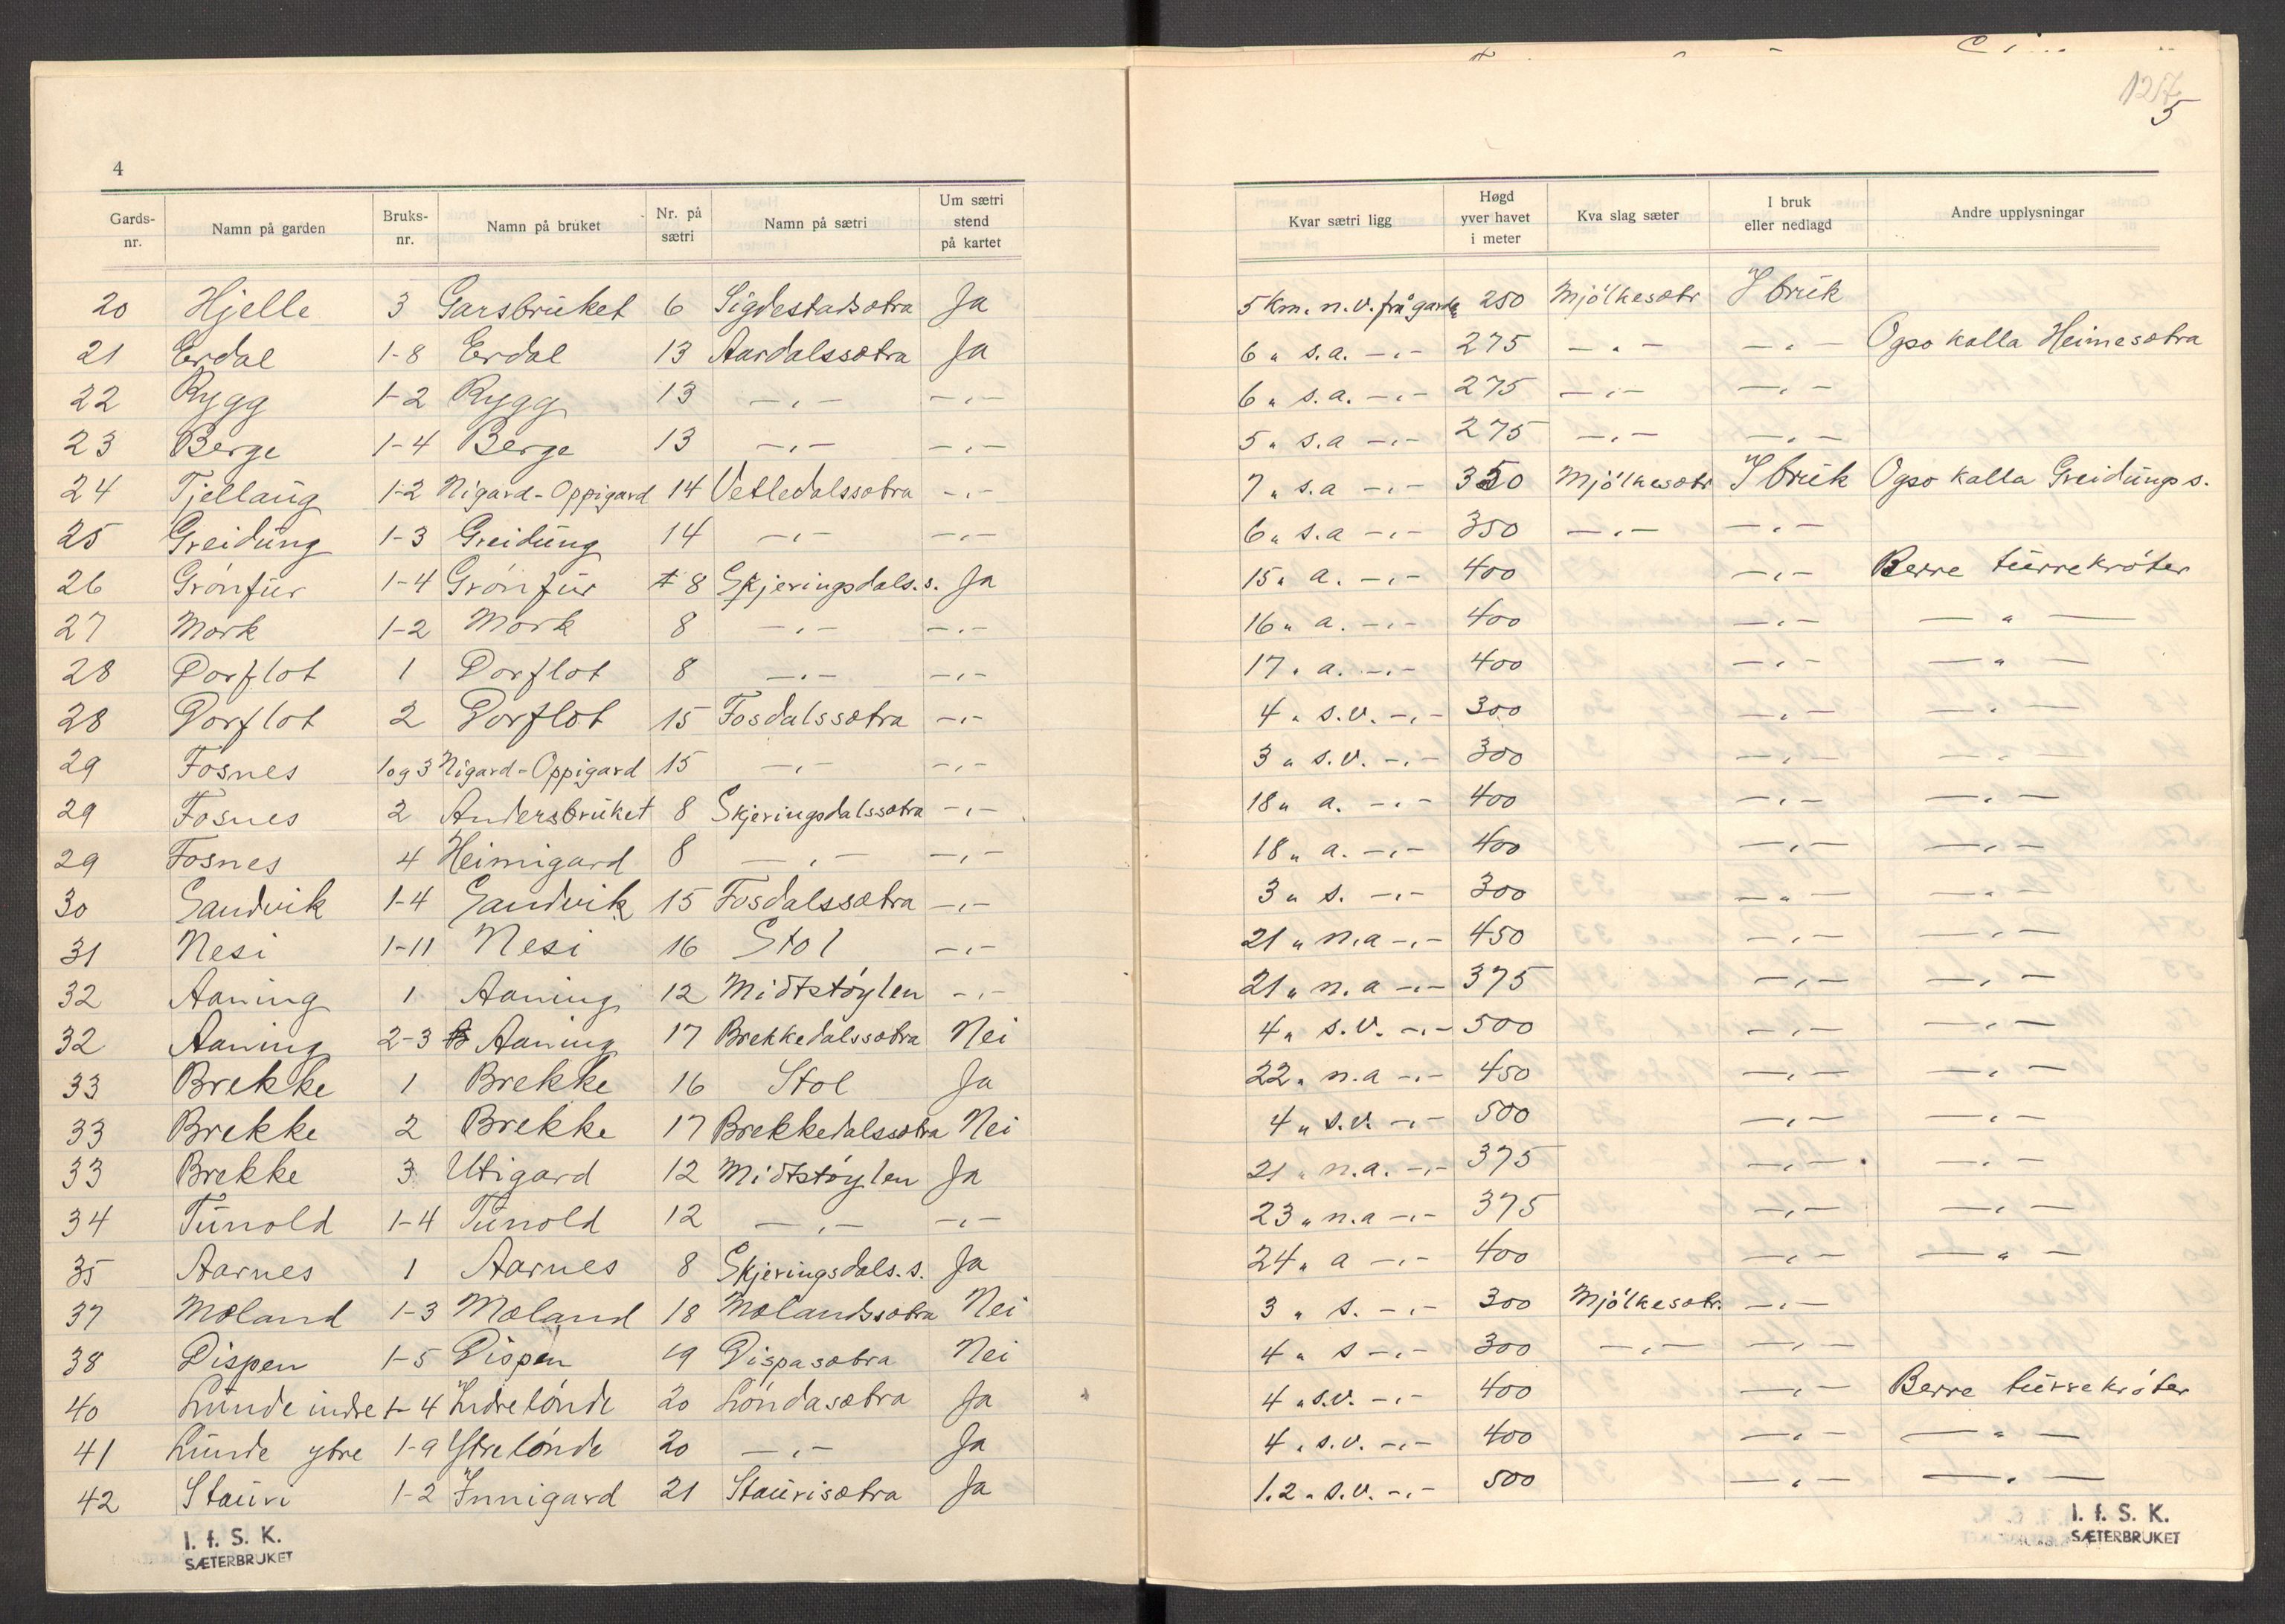 4
Gards-nr. Namn på garden Bruks-nr. Namn på bruket Nr. på sætri Namn på sætri Um sætri stend på kartet
20 Hjelle 3 Garsbruket 6 Sigdestadsætra Ja
21 Erdal 1-8 Erdal 13 Aardalssætra Ja
22 Rygg 1-2 Rygg 13 -„- -„-
23 Berge 1-4 Berge 13 -„- -„-
24 Tjellaug 1-2 Nigard-Oppigard 14 Vetledalssætra -„-
25 Greidung 1-3 Greidung 14 -„- -„-
26 Grónfur 1-4 Grónfur 8 Skjeringsdals.s. Ja
27 Mork 1-2 Mork 8 -„- -„-
28 Dorflot 1 Dorflot 8 -„- -„-
28 Dorflot 2 Dorflot 15 Fosdalssætra -„-
29 Fosnes 1 og 3 Nigard-Oppigard 15 -„- -„-
29 Fosnes 2 Andersbruket 8 Skjeringsdalssætra -„-
29 Fosnes 4 Heimigard 8 -„- -„-
30 Sandvik 1-4 Sandvik 15 Fosdalssætra -„-
31 Nesi 1-11 Nesi 16 Stol -„-
32 Aaning 1 Aaning 12 Midtstóylen -„-
32 Aaning 2-3 Aaning 17 Brekkedalssætra Nei
33 Brekke 1 Brekke 16 Stol Ja
33 Brekke 2 Brekke 17 Brekkedalssætra Nei
33 Brekke 3 Utigard 12 Midtstóylen Ja
34 Tunold 1-4 Tunold 12 -„- -„-
35 Aarnes 1 Aarnes 8 Skjeringsdals.s. Ja
37 Mæland 1-3 Mæland 18 Mælandssætra Nei
38 Dispen 1-5 Dispen 19 Dispasætra Nei
40 Lunde indre 1-4 Indre lónde 20 Lóndasætra Ja
41 Lunde ytre 1-9 Ytre lónde 20 -„- Ja
42 Stauri 1-2 Innigard 21 Staurisætra Ja
I. f. S. K.
SÆTERBRUKET
1257
5
Kvar sætri ligg Høgd yver havet i meter Kva slag sæter I bruk eller nedlagd Andre upplysningar
5 km. n.v. frå garde 250 Mjólkesætr I bruk
6 „ s.a. -„- 275 -„- -„- Ogso kalla Heimesætra
6 „ s.a. -„- 275 -„- -„-
5 „ s.a -„- 275 -„- -„-
7 „ s.a -„- 350 Mjólkesætr I bruk Ogso kalla Greidungs s.
6 „ s.a -„- 350 -„- -„-
15 „ a. -„- 400 -„- Berre turrekróter
16 „ a. -„- 400 -„- -„-
17 „ a. -„- 400 -„- -„-
4 „ s.v. -„- 300 -„- -„-
3 „ s.v. -„- 300 -„- -„-
18 „ a. -„- 400 -„- -„-
18 „ a. -„- 400 -„- -„-
3 „ s. -„- 300 -„- -„-
21 „ n.a -„- 450 -„- -„-
21 „ n.a -„- 375 -„- -„-
4 „ s.v. -„- 500 -„- -„-
22 „ n.a -„- 450 -„- -„-
4 „ s.v. -„- 500 -„- -„-
21 „ n.a. -„- 375 -„- -„-
23 „ n.a -„- 375 -„- -„-
24 „ a -„- 400 -„- -„-
3 „ s. -„- 300 Mjólkesætr. -„-
4 „ s -„- 300 -„- -„-
4 „ s.v. -„- 400 -„- Berre turrekróter
4 „ s.v. -„- 400 -„- -„-
1.2 „ s.v. -„- 500 -„- -„-
I. f. S. K.
SÆTERBRUKET